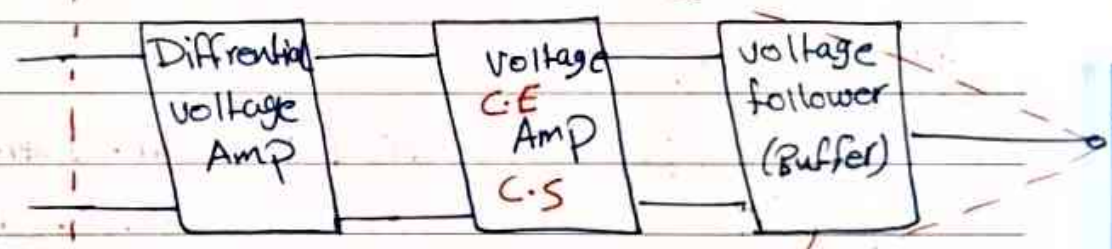 Diffrential
voltage
Amp
voltage
C.E
Amp
C.S
voltage
follower
(Buffer)